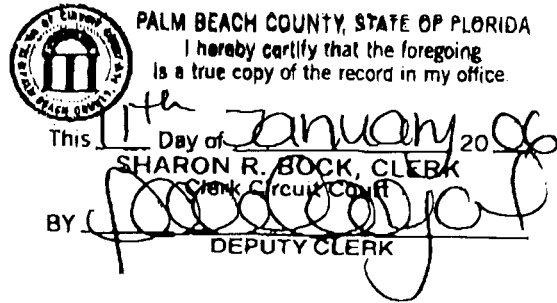 PALM BEACH COUNTY, STATE OF FLORIDA
I hereby certify that the foregoing
is a true copy of the record in my office.
This 11th Day of January 2006
SHARON R. BOCK, CLERK
Clerk Circuit Court
BY
DEPUTY CLERK